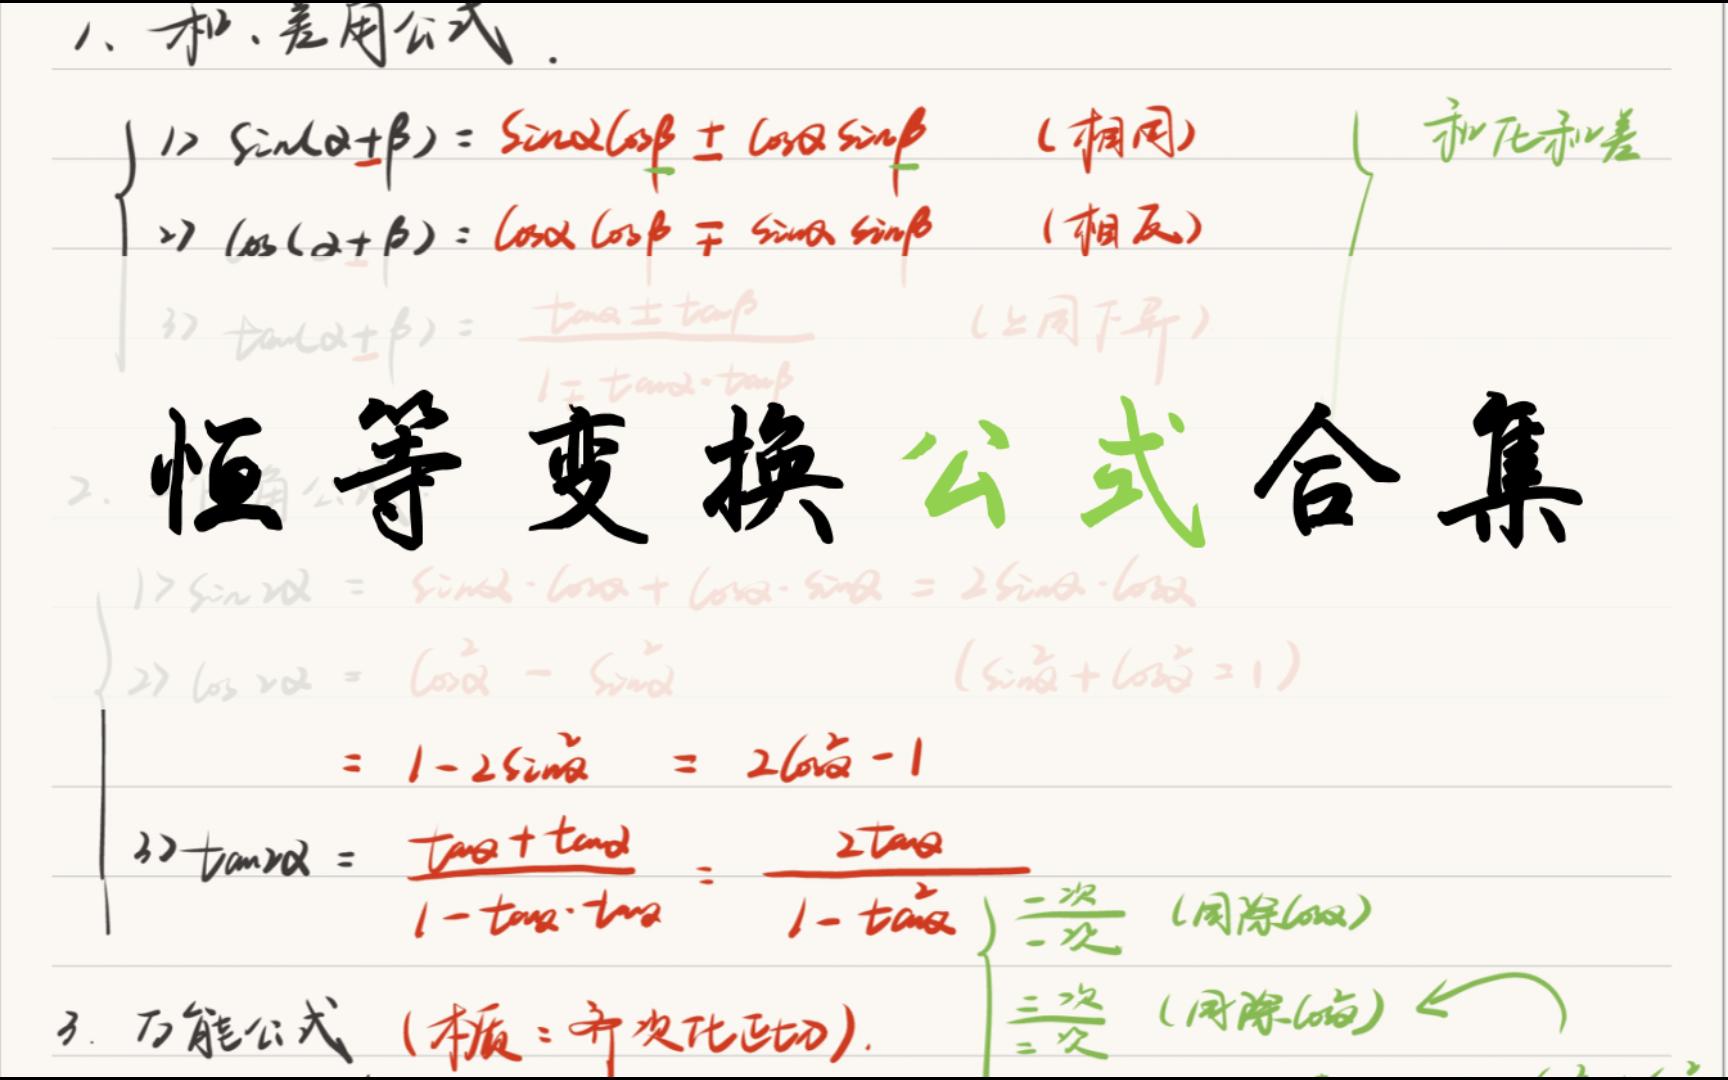 1、和、差角公式.
1> sin(α±β) = sinαcosβ ± cosαsinβ (相同)
和化和差
2> cos(α±β) = cosαcosβ ∓ sinαsinβ (相反)
3> tan(α±β) = (tanα ± tanβ)/(1 ∓ tanα·tanβ) (上同下异)
恒等变换公式合集
2. 角公
1> sin2α = sinα·cosα + cosα·sinα = 2sinα·cosα
2> cos2α = cos²α - sin²α (sin²α + cos²α = 1)
= 1 - 2sin²α = 2cos²α - 1
3> tan2α = (tanα + tanα)/(1 - tanα·tanα) = 2tanα/(1 - tan²α)
一次/一次 (同除cosα)
二次/二次 (同除cos²α)
3. 万能公式 (本质:齐次化正切).